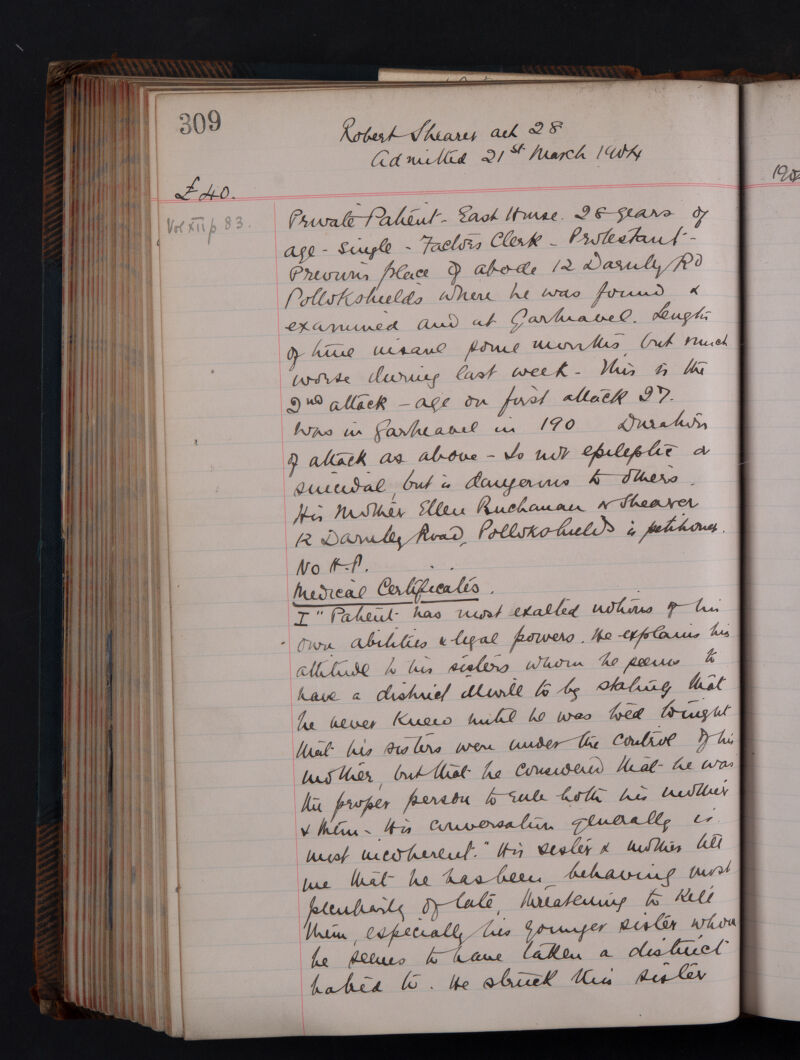 309
Robert Shearer aet 28
Admitted 21st March 1904
190
£40.
Vol XII p 83.
Private Patient - East House. 28 years of
age - Single - Factors Clerk - Protestant -
Previous place of abode 12 Darnley Rd
Pollokshields where he was found &
examined and at Gartnavel. Length
of time insane some months, but much
worse during last week - This is the
2nd attack - age on first attack 27.
Was in Gartnavel in 190 Duration
of attack as above - Is not epileptic or
suicidal, but is dangerous to others.
His Mother Ellen Buchanan or Shearer
12 Darnley Road, Pollokshields is petitioner.
No H.P.
Medical Certificates.
I " Patient has most exalted notions of his
own abilities & legal powers. He explains his
attitude to his sisters whom he seems to
have a distinct illwill to by stating that
he never knew until he was told tonight
that his sisters were under the control of his
mother, but that he considered that he was
the proper person to rule both his mother
& them - His conversation generally is
most incoherent." His sister & mother tell
me that he has been behaving most
peculiarly of late, threatening to kill
them, especially his younger sister whom
he seems to have taken a distinct
hatred to. He struck this sister